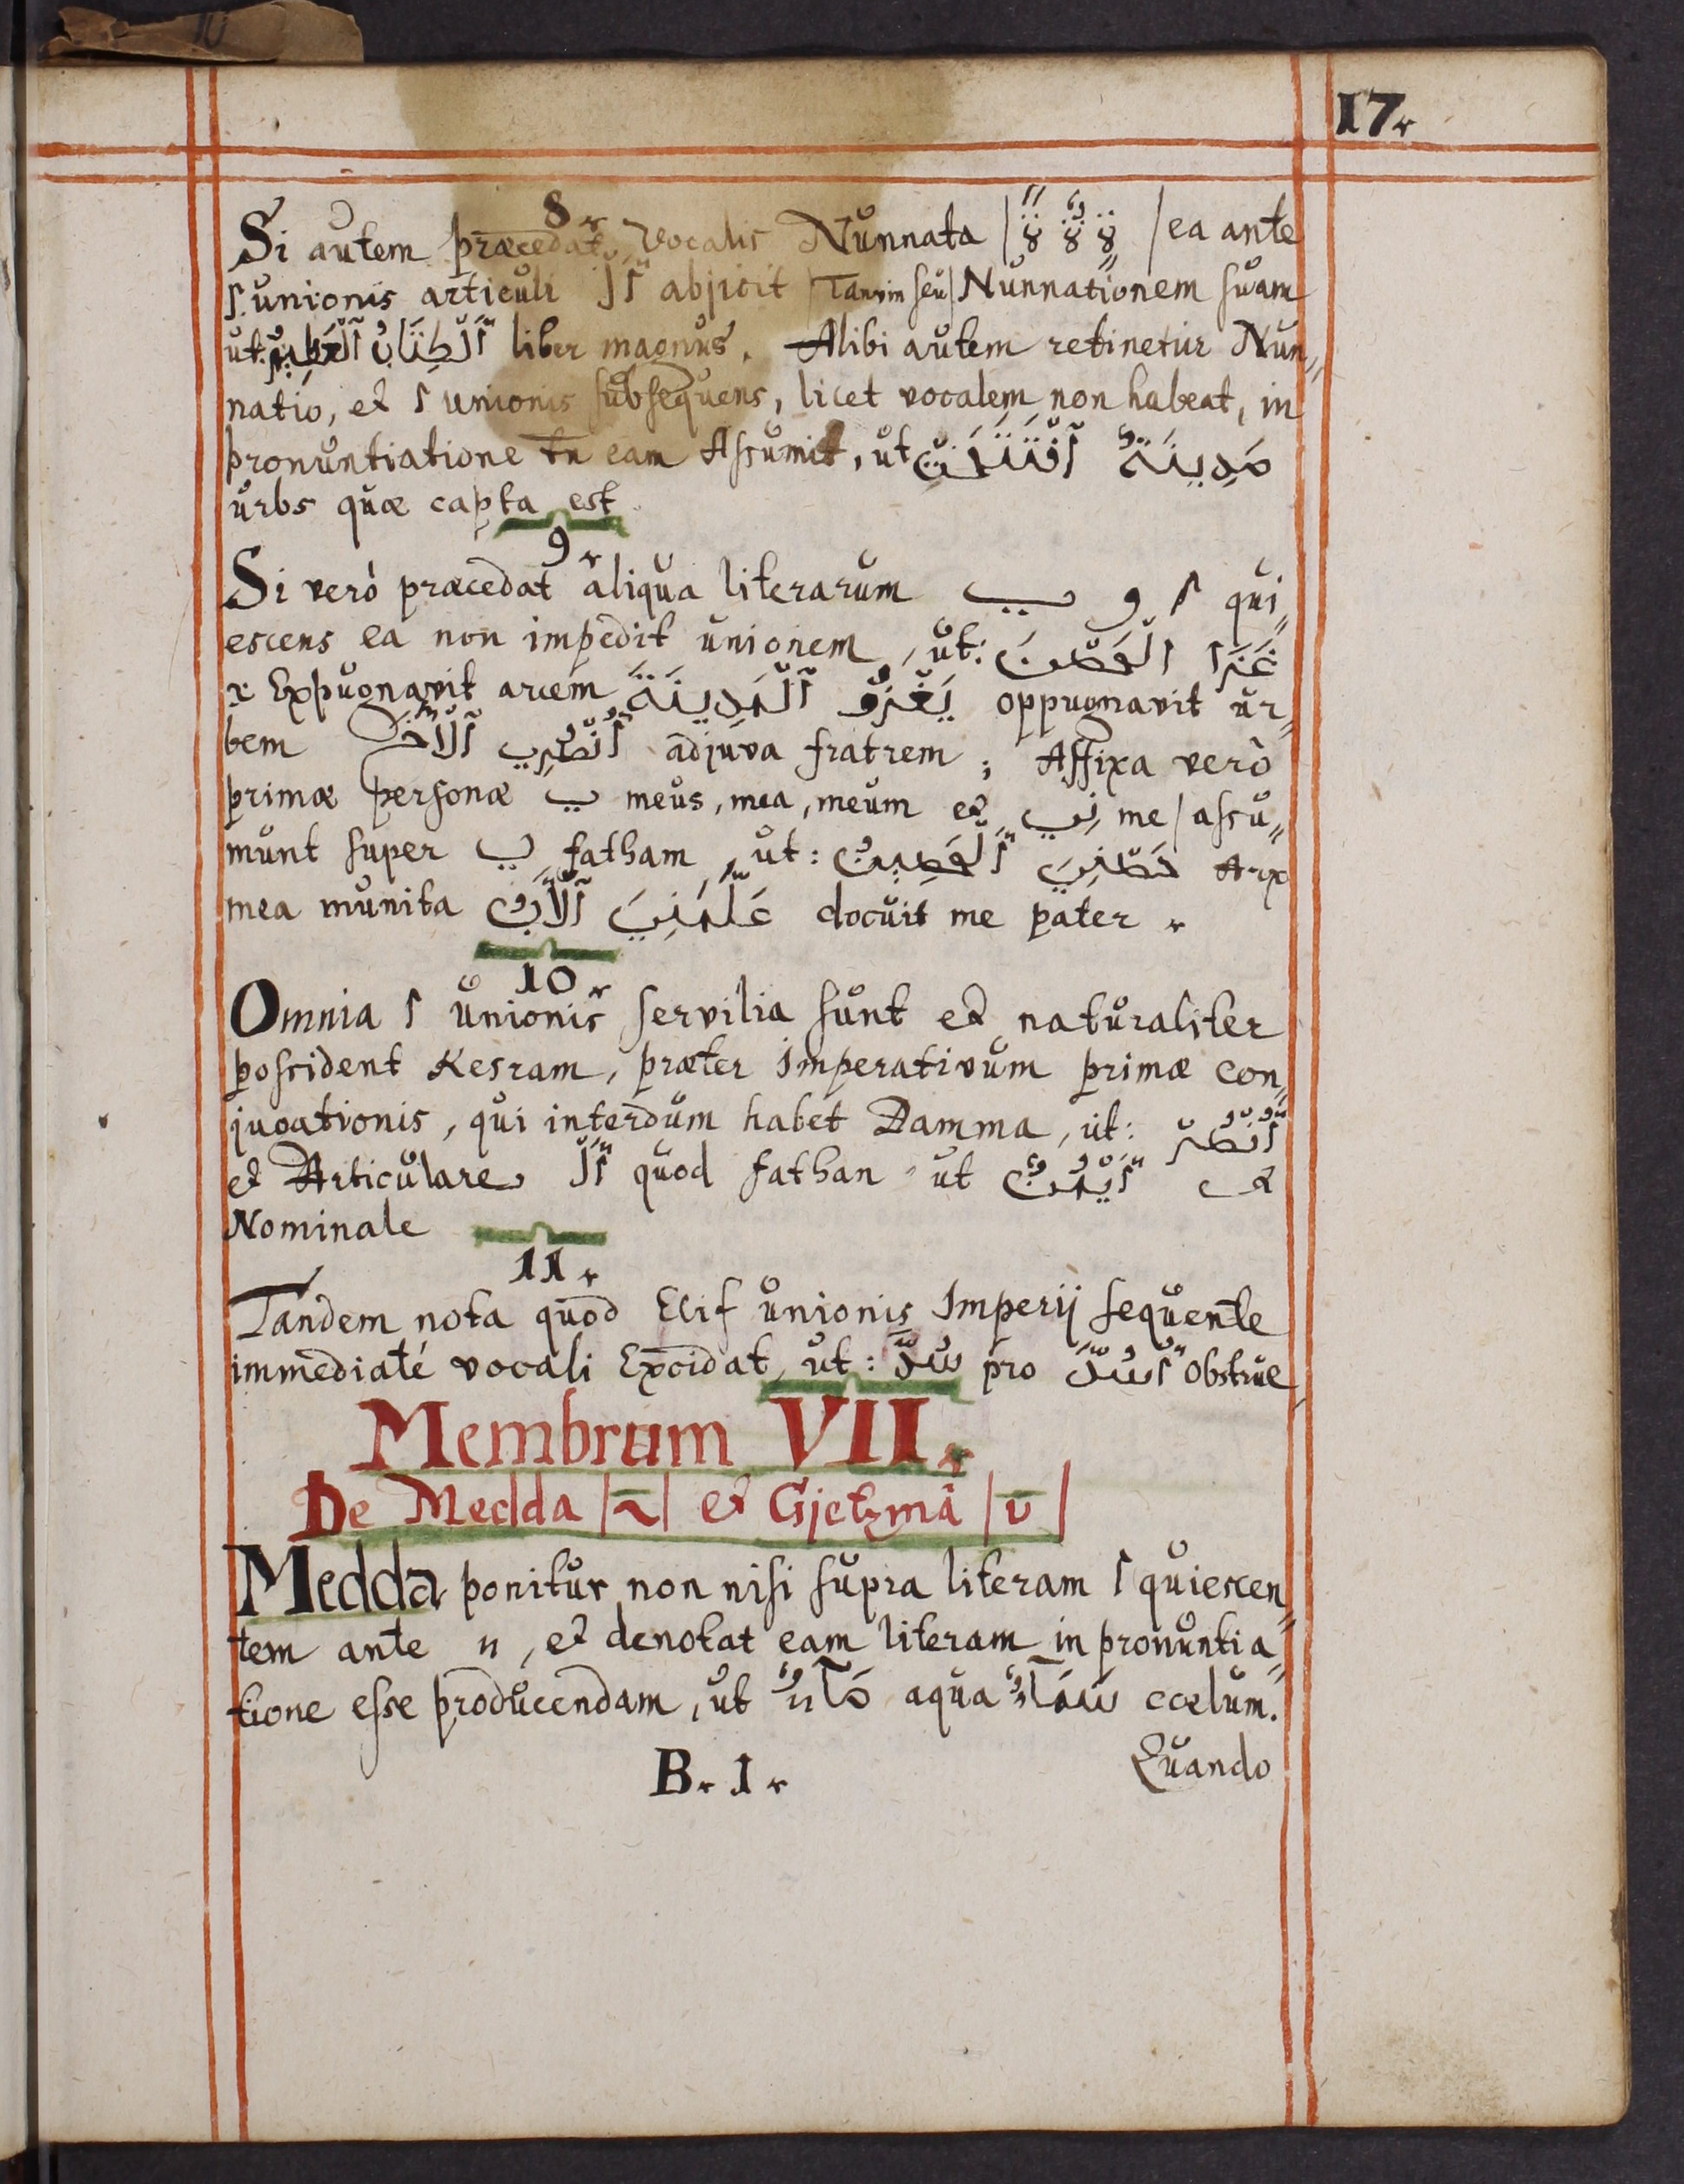 17.
8.
Si autem præcedat, vocalis Nunnata / ةً ةٌ ةٍ / ea ante
ا unionis articuli اَلْ abjicit / Tanvin seu / Nunnationem suam
ut: اَلْكِتَابُ ٱلْعَظِيمُ liber magnus. Alibi autem retinetur Nun„
natio, et ا unionis subsequens, licet vocalem non habeat, in
pronuntiatione tn eam Assumit, ut مَدِينَةٌ ٱفْتَتَحَتْ
urbs quæ capta est
9.
Si verò præcedat aliqua literarum ا و ي qui„
escens ea non impedit unionem, ut: غَزَا الْحَصْنَ
Expugnavit arcem يَغْزُو ٱلْمَدِينَةَ oppugnavit ur„
bem اُنْصُرِي ٱلْأَخَ adjuva fratrem; Affixa verò
primæ personæ ي meus, mea, meum et نِي me / assu„
munt super ي fatham, ut: حَصْنِيَ اَلْحَصِينُ Arx
mea munita عَلَّمَنِيَ ٱلْأَبُ docuit me pater.
10.
Omnia ا unionis servilia sunt et naturaliter
possident Kesram, præter Imperativum primæ con„
jugationis, qui interdum habet Damma, ut: اُنْصُرْ
et Articulare اَلْ quod fathan ut اَيْمُنٌ
Nominale
11.
Tandem nota quod Elif unionis Imperij sequente
immediaté vocali Excidat, ut: سُدَّ pro اُسُدَّ obstrue
Membrum VII.
De Medda / ~ / et Gjetzmâ / ט /
Medda ponitur non nisi supra literam ا quiescen„
tem ante ء, et denotat eam literam in pronuntia„
tione esse producendam, ut مَآءٌ aqua سَمَآءٌ cœlum.
B. 1.
Quando